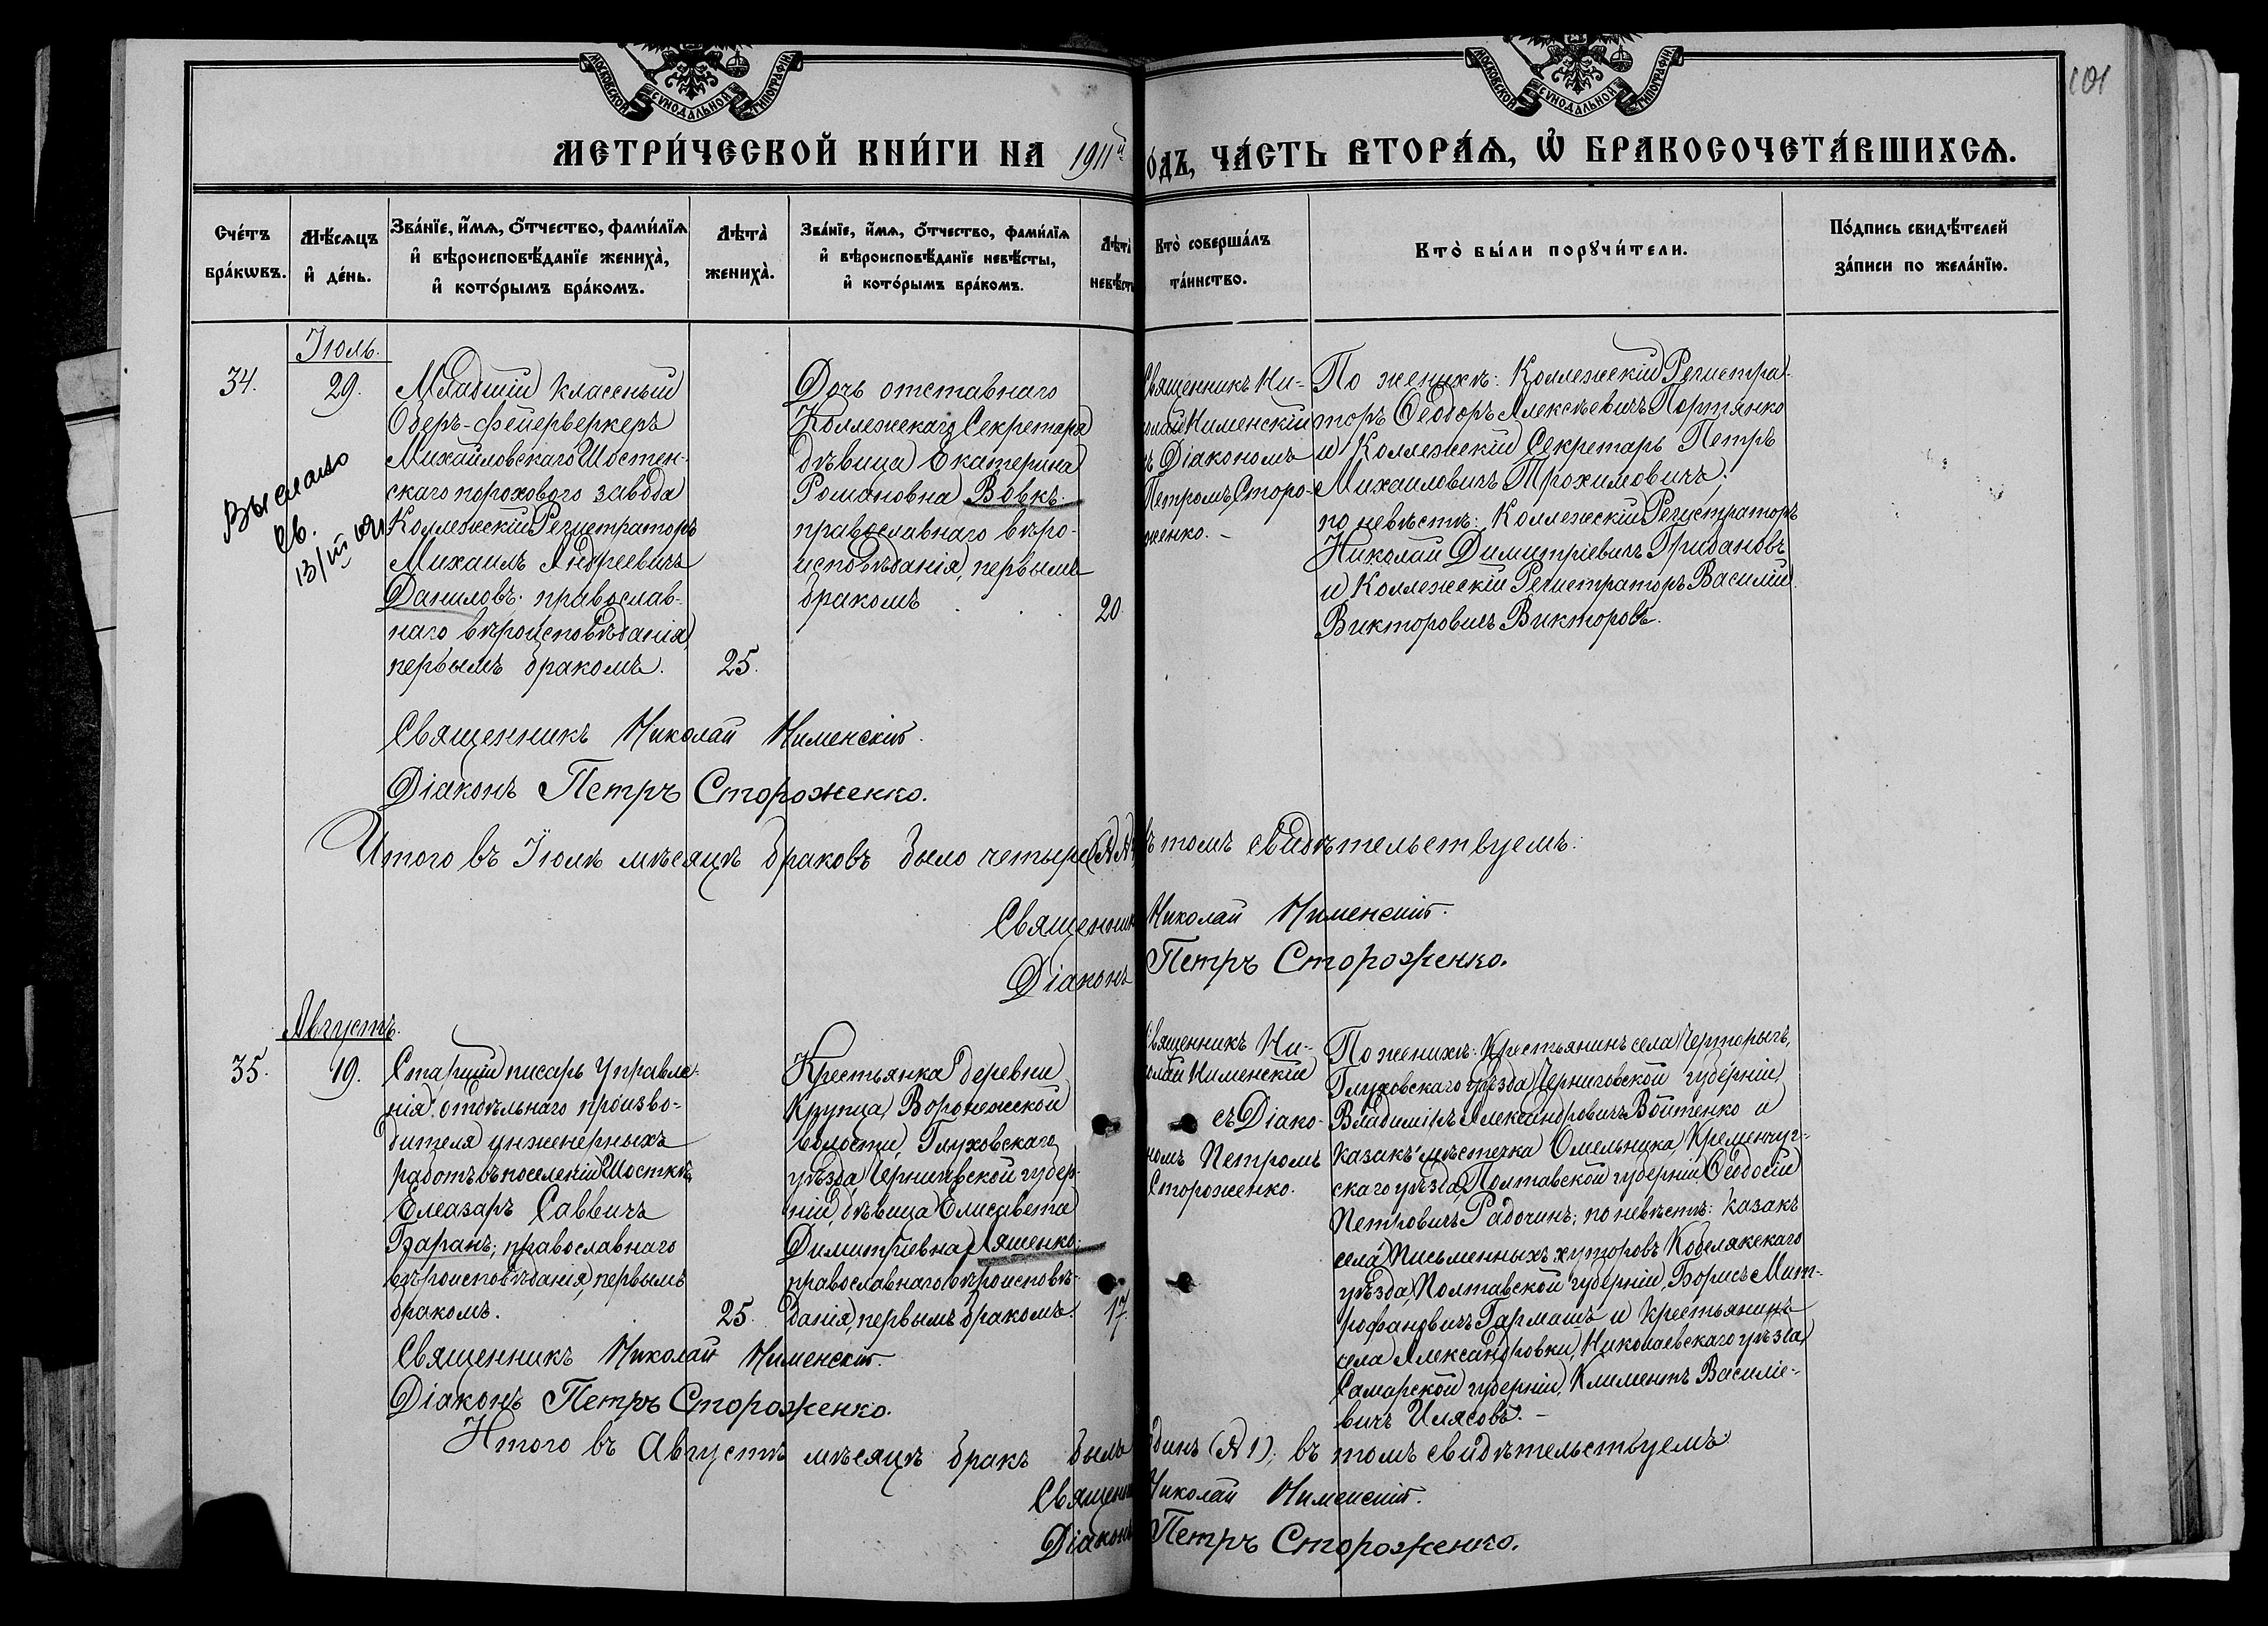 МОСКОВСКОЙ СѴНОДАЛЬНОЙ ТИПОГРАФІИ
МОСКОВСКОЙ СѴНОДАЛЬНОЙ ТИПОГРАФІИ
101
МЕТРИ́ЧЕСКОЙ КНИ́ГИ НА 1911й
О́ДЪ, ЧА́СТЬ ВТОРА́Ѧ, Ѡ҆ БРАКОСОЧЕТА́ВШИХСѦ.
Сче́тъ бра́кѡвъ.
Мѣ́сѧцъ и҆ де́нь.
Зва́нїе, и҆́мѧ, ѻ҆́тчество, фами́лїѧ
и҆ вѣроисповѣ́данїе жениха̀,
и҆ кото́рымъ бра́комъ.
Лѣта̀ жениха̀.
Зва́нїе, и҆́мѧ, ѻ҆́тчество, фами́лїѧ
и҆ вѣроисповѣ́данїе невѣ́сты,
и҆ кото́рымъ бра́комъ.
Лѣта̀
невѣ́сты
Кто̀ соверша́лъ
та́инство.
Кто̀ бы́ли порꙋчи́тели.
По́дпись свидѣ́телей
за́писи по жела́нїю.
Іюль.
34.
29.
Младшій классный
Оберъ-фейерверкеръ
Михайловскаго Шостен-
скаго порохового завода
Коллежскій Регистраторъ
Михаилъ Андреевичъ
Даниловъ. православ-
наго вѣроисповѣданія,
первымъ бракомъ.
25.
Выслано
св.
Дочь отставнаго
Коллежскаго Секретаря
дѣвица Екатерина
Романовна Вовкъ.
православнаго вѣро-
исповѣданія, первымъ
бракомъ
20
Священникъ Ни-
колай Нименскій
съ Діакономъ
Петромъ Сторо-
женко. –
По женихѣ: Коллежскій Регистра-
торъ Ѳеодоръ Алексѣевичъ Портянко
и Коллежскій Секретарь Петръ
Михаиловичъ Трохимовичъ;
по невѣстѣ: Коллежскій Регистраторъ
Николай Димитріевичъ Грибановъ
и Коллежскій Регистраторъ Василій
Викторовичъ Викторовъ.
Священникъ Николай Нименскій.
Діаконъ Петръ Стороженко.
Итого въ Іюлѣ мѣсяцѣ браковъ было четыре
въ томъ свидѣтельствуемъ:
Священникъ Николай Нименскій.
Діаконъ Петръ Стороженко.
Августъ.
35.
19.
Старшій писарь Управле-
нія отдѣльнаго произво-
дителя инженерныхъ
работъ въ поселеніи Шосткѣ,
Елеазаръ Саввичъ
православнаго
вѣроисповѣданія, первымъ
бракомъ.
25.
Крестьянка деревни
Крупца, Воронежской
волости, Глуховскаго
уѣзда Черниговской губер-
ніи, дѣвица Елисавета
Димитріевна Ляшенко;
православнаго вѣроисповѣ-
данія, первымъ бракомъ.
17.
Священникъ Ни-
колай Нименскій
съ Діако-
номъ Петромъ
Стороженко.
По женихѣ: Крестьянинъ села Черторыгъ,
Глуховскаго уѣзда Черниговской губерніи,
Владиміръ Александровичъ Войтенко и
казакъ мѣстечка Омельника, Кременчуг-
скаго уѣзда, Полтавской губерніи, Ѳеодосій
Петровичъ Радочинъ; по невѣстѣ: казакъ
села Письменныхъ хуторовъ Кобелякскаго
уѣзда, Полтавской губерніи, Борисъ Мит-
рофановичъ Гармашъ и крестьянинъ
села Александровки, Николаевскаго уѣзда,
Самарской губерніи, Климентъ Василіе-
вичъ Илясовъ. –
Священникъ Николай Нименскій.
Діаконъ Петръ Стороженко.
Итого въ Августѣ мѣсяцѣ бракъ былъ одинъ (№ 1); въ томъ свидѣтельствуемъ
Священникъ Николай Нименскій.
Діаконъ Петръ Стороженко.